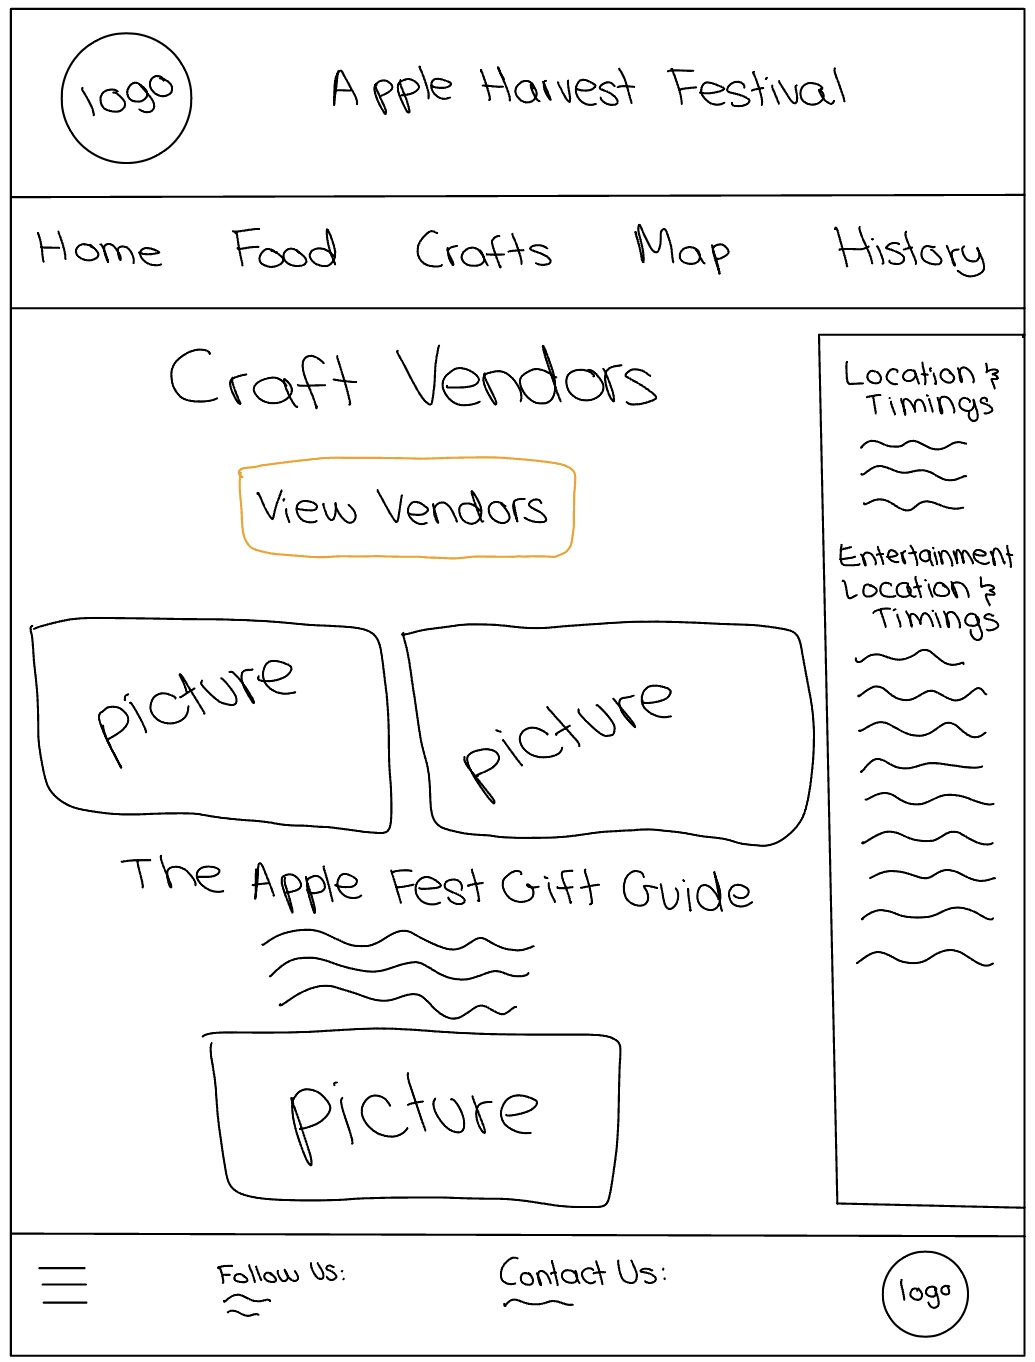 logo
Apple Harvest Festival
Home Food Crafts Map History
Craft Vendors
View Vendors
picture
picture
The Apple Fest Gift Guide
picture
Location &
Timings
Entertainment
Location &
Timings
Follow Us:
Contact Us:
logo